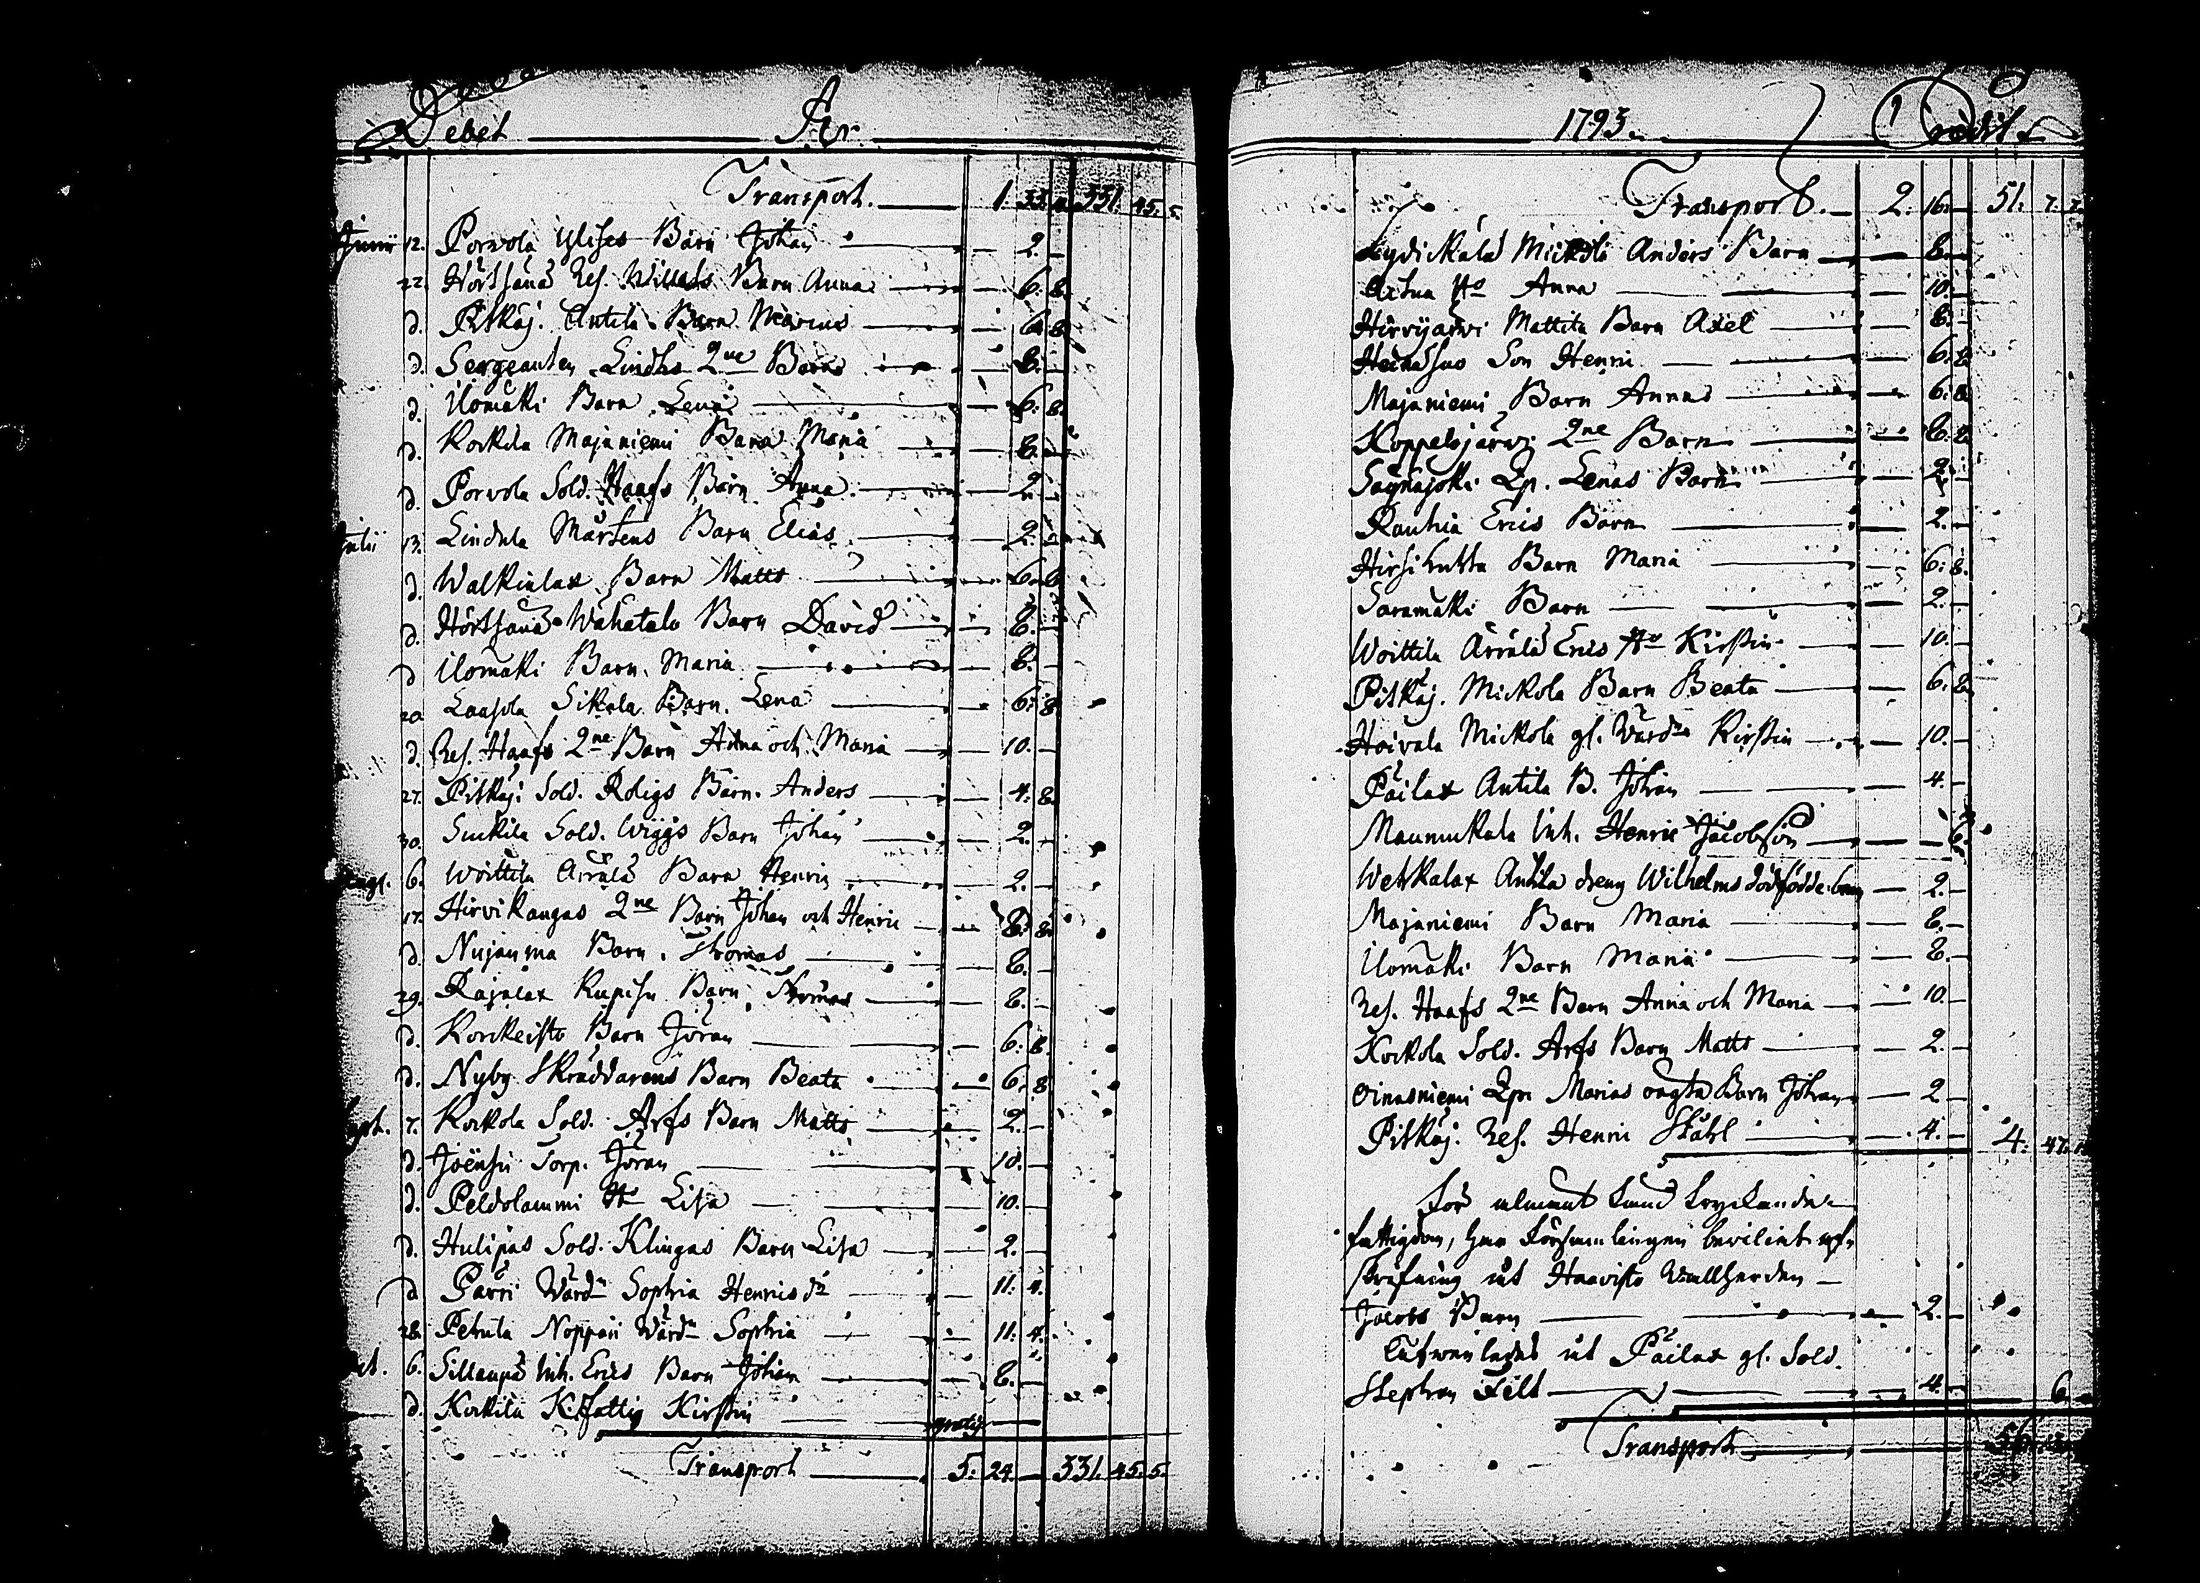 Debet År
Transport. 1. 33. 331. 45. 5.
Junii 12. Porvola Barn Johan 2.
22. Hörtsänä Res. Barn Anna 6. 8.
d. Pitkäj. Antila Barn 6. 8.
d. Sergeanten Lindhs 2ne Barn 8.
d. Ilomäki Barn Lena 6. 8.
d. Kockila Majaniemi Barn Maria 8.
d. Porvola Sold. Haafs Barn Anna 2.
Julii 13. Lindula Mårtens Barn Elias 2.
d. Walkialax Barn Matts 6. 8.
d. Hörtsänä Wähätalo Barn David 8.
d. Ilomäki Barn Maria 8.
20. Laasola Sikala Barn Lena 6. 8.
d. Res. Haafs 2ne Barn Anna och Maria 10.
27. Pitkäj. Sold. Roligs Barn Anders 4. 8.
30. Sold. Wiggs Barn Johan 2.
Aug. 6. Woittila Ärrälä Barn Henric 2.
17. Hirvikangas 2ne Barn Johan och Henric 8.
d. Nujanma Barn Thomas 8.
29. Rajalax Rupisu Barn Thomas 8.
d. Korkeisto Barn Jöran 6. 8.
d. Nyby Skräddarens Barn Beata 6. 8.
Sept. 7. Kockola Sold. Arfs Barn Matts 2.
d. Joensu Torp. Jöran 10.
d. Peldolammi Lisa 10.
d. Hulipas Sold. Klingas Barn Lisa 2.
d. Pärri Wärdn Sophia Henricsdr 11. 4.
28. Petula Noppari Wärdn Sophia 11. 4.
Oct. 6. Sillanpä Inh. Erics Barn Johan 8.
d. Kockila K.fattig Kirstin gratis
Transport 5. 24. 331. 45. 5.
1793. Credit
Transport. 2. 16. 51. 7.
Mickola Anders Barn 8.
Anna 10.
Hirvijärvi Mattila Barn Axel 8.
Son Henric 6. 8.
Majaniemi Barn Anna 6. 8.
Koppelojärvi 2ne Barn 6. 8.
Säynäjoki Qp. Lenas Barn 2.
Rauhia Erics Barn 2.
Hirsikutta Barn Maria 6. 8.
Saramäki Barn 2.
Woittila Ärrälä Erics Kirstin 10.
Pitkäj. Mickola Barn Beata 6. 8.
Hoivala Mickola gl. Wärdn Kirstin 10.
Päilax Antila B. Johan 4.
Maunukala Inh. Henric Jacobson
Wehkalax Antila dreng Wilhelms dödfödde barn 2.
Majaniemi Barn Maria 8.
Ilomäki Barn Maria 8.
Res. Haafs 2ne Barn Anna och Maria 10.
Kockola Sold. Arfs Barn Matts 2.
Oinasniemi Qp. Marias oägta Barn Johan 2
Pitkäj. Res. Henric Ståhl 4. 4. 47.
För allmänt känd tryckande
fattigdom, har Församlingen beviljat af-
skrifning åt Haavisto Wallherden
Jacobs Barn 2.
Päilax gl. Sold.
Stephan Fält 4. 6.
Transport 56.